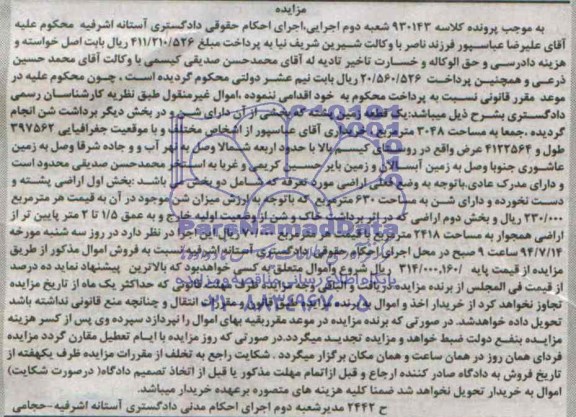 مزایده
به موجب پرونده کلاسه ۹۳۰۱۴۳ شعبه دوم اجرایی،اجرای احکام حقوقی دادگستری آستانه اشرفیه محکوم علیه
آقای علیرضا عباسپور فرزند ناصر با وکالت شیرین شریف نیا به پرداخت مبلغ ۴۱۱/۲۱۰/۵۲۶ ریال بابت اصل خواسته و
هزینه دادرسی و حق الوکاله و خسارت تاخیر تادیه له آقای محمدحسن صدیقی کیسمی با وکالت آقای محمد حسین
ذرعی و همچنین پرداخت ۲۰/۵۶۰/۵۲۶ ریال بابت نیم عشر دولتی محکوم گردیده است . چون محکوم علیه در
موعد مقرر قانونی نسبت به پرداخت محکوم به خود اقدامی ننموده ،اموال غیرمنقول طبق نظریه کارشناسان رسمی
دادگستری بشرح ذیل میباشد:یک قطعه زمین پشته که بخشی از آن دارای شن و در بخش دیگر برداشت شن انجام
گردیده ،جمعا به مساحت ۳۰۴۸ مترمربع خریداری آقای عباسپور از اشخاص مختلف و با موقعیت جغرافیایی ۳۹۷۵۶۲
طول و ۴۱۲۲۵۶۴ عرض واقع در روستای کیسم بالا با حدود اربعه شمالا وصل به نهر آب و و جاده شرقا وصل به زمین
عاشوری جنوبا وصل به زمین آبسالان و زمین بایر حسین کریمی و غربا به استخر محمدحسن صدیقی محدود است
و دارای مدرک عادی.باتوجه به وضع فعلی اراضی مورد تعرفه که شامل دو بخش می باشد :بخش اول اراضی پشته و
دست نخورده و دارای شن به مساحت ۶۳۰ مترمربع که باتوجه به ارزش میزان شن موجود در آن به قیمت هر مترمربع
۲۳۰/۰۰۰ ریال و بخش دوم اراضی که در اثر برداشت خاک و شن از وضعیت اولیه خارج و به عمق ۱/۵ تا ۲ متر پایین تر از
اراضی همجوار به مساحت ۲۴۱۸ مترمربع ریال اجرا در نظر دارد در روز سه شنبه مورخه
۹۴/۷/۱۴ ساعت ۹ صبح در محل اجرای احکام حقوقی دادگستری آستانه اشرفیه نسبت به فروش اموال مذکور از طریق
مزایده از قیمت پایه ۳۱۴/۰۰۰,۱۶۰/ ریال شروع واموال متعلق به کسی خواهدبود که بالاترین پیشنهاد نماید ده درصد
از قیمت فی المجلس از برنده مزایده دریافت و الباقی وجه که حداکثر یک ماه از تاریخ مزایده
تجاوز نخواهد کرد از خریدار اخذ و اموال به برنده مزایده طبق قانون و مقررات انتقال و چنانچه منع قانونی نداشته باشد
تحویل داده خواهدشد. در صورتی که برنده مزایده در موعد مقرربقیه بهای اموال را نپردازد سپرده وی پس از کسر هزینه
مزایده بنفع دولت ضبط خواهد و مزایده تجدید میگردد.در صورتی که روز مزایده با ایام تعطیل مقارن گردد مزایده
فردای همان روز در همان ساعت و همان مکان برگزار میگردد . شکایت راجع به تخلف از مقررات مزایده ظرف یکهفته از
تاریخ فروش به دادگاه صادر کننده ارجاع و قبل ازاتمام مهلت مذکور یا قبل از اتخاذ تصمیم دادگاه( درصورت شکایت)
اموال به خریدار تحویل نخواهد شد ضمنا کلیه هزینه های متصوره برعهده خریدار میباشد.
ح ۲۴۴۲ مدیرشعبه دوم اجرای احکام مدنی دادگستری آستانه اشرفیه-حجامی
ParsNamadData
۰۲۱-۸۸۳۴۹۶۷۰-۵